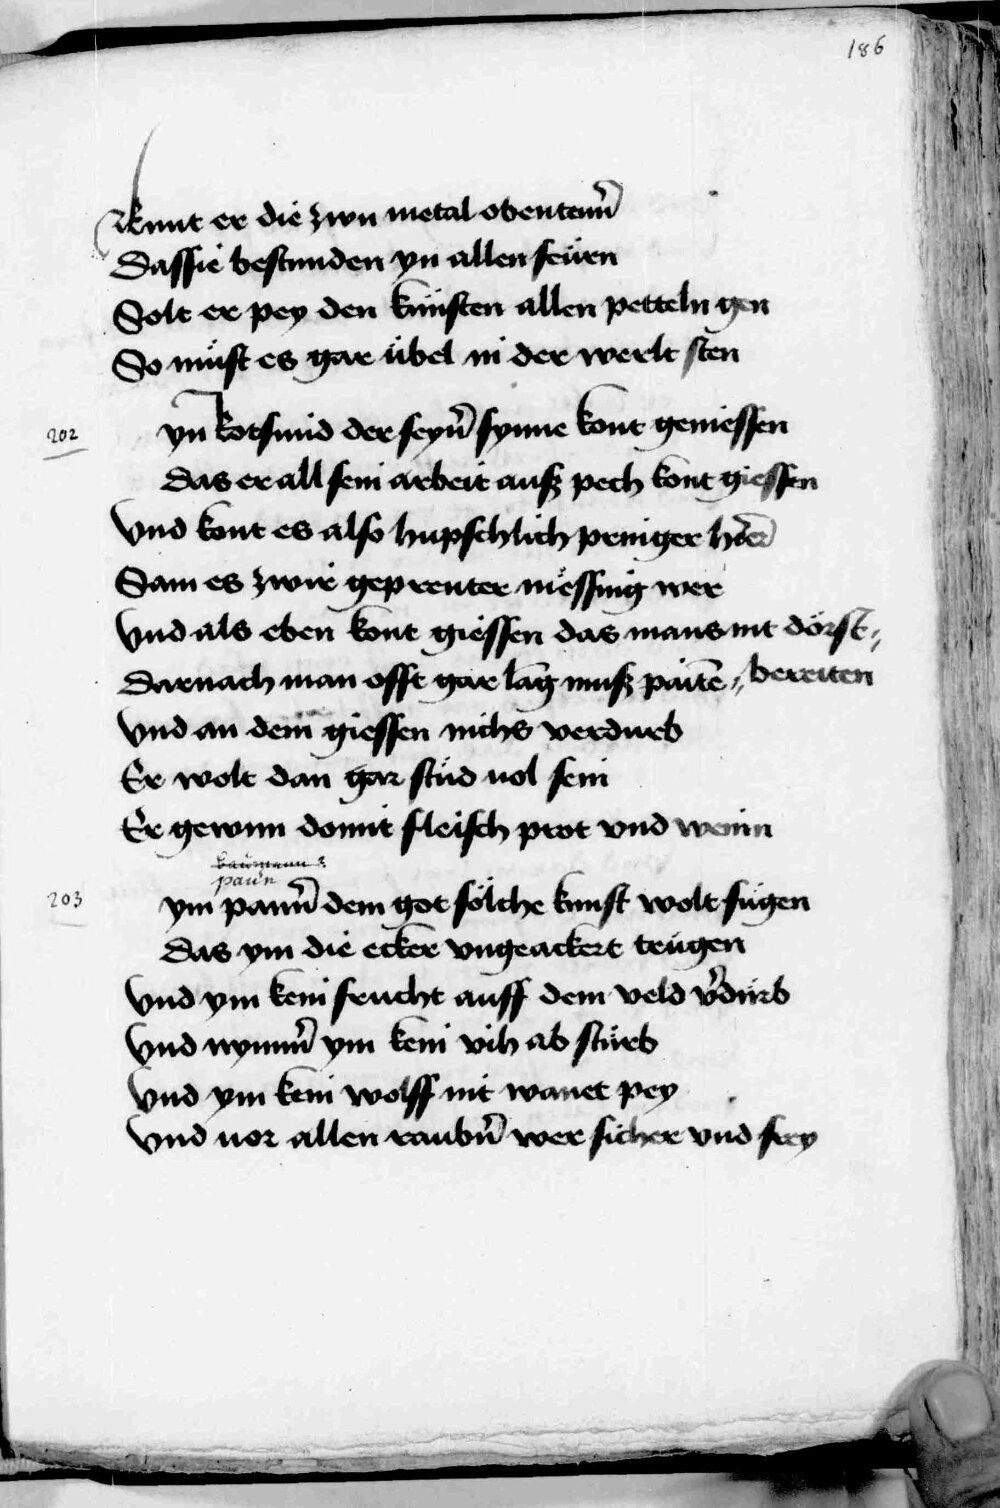 186
Kunt er die zwu metal obenteuͤrn
Das sie bestunden yn allen feuͤrn
Solt er pey den kuͤnsten allen petteln gen
So muͤst es gar uͤbel in der werlt sten
202
yn kotsmid der seyn̄ synne kont geniessen
Das er all sein arbeit auß pech kont giessen
Vnd kont es also hupschlich pringer her
Sam es zwir geprenter messing wer
Vnd als eben kont giessen das mans nit doͤrst //
Darnach man offt gar lāg muß paitē // bereiten
Vnd an dem giessen nichs verdurb
Er wolt dan gar stuͤd uol sein
Er gewun domit fleisch prot vnd wein
baumann?
paur̄n
203
ym paur̄n dem got soͤlche kunst wolt fuͤgen
Das ym die ecker vngeackert truͤgen
Vnd ym kein frucht auff dem veld v̄duͤrb
Vnd nymm̄ ym kein vih ab stuͤrb
Vnd ym kein wolff nit wanet pey
Vnd uor allen raubn̄ wer sicher vnd frey